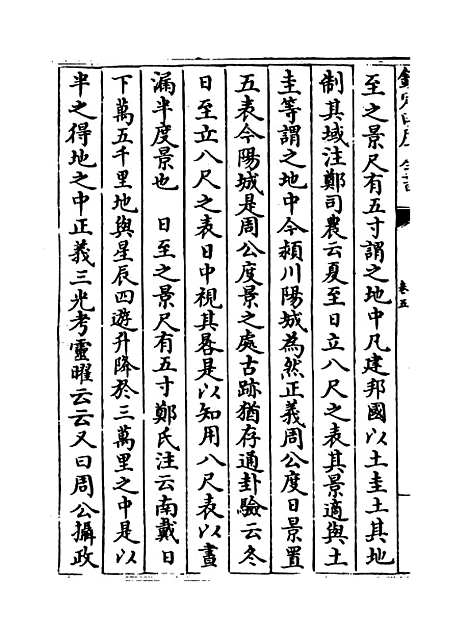 至之景尺有五寸謂之地中凡建邦國以土圭土其地
制其域注鄭司農云夏至日立八尺之表其景適與土
圭等謂之地中今潁川陽城為然正義周公度日景置
五表今陽城是周公度景之處古跡猶存通卦驗云冬
日至立八尺之表日中視其晷是以知用八尺表以晝
漏半度景也　日至之景尺有五寸鄭氏注云南戴日
下萬五千里地與星辰四遊升降於三萬里之中是以
半之得地之中正義三光考靈曜云云又曰周公攝政
卷五